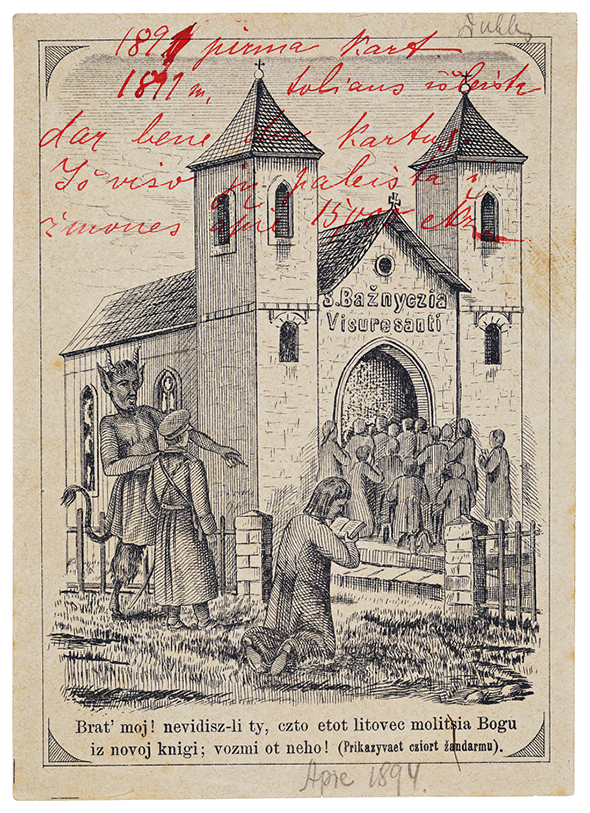 pirma kart
m, toliaus išleista
dar bene du kartus.
Iš viso jų paleista į
žmones apie
S. Bažnyczia
Visuresanti
Brat' moj! nevidisz-li ty, czto etot litovec molitsia Bogu
iz novoj knigi; vozmi ot neho! (Prikazyvaet cziort žandarmu).
Apie 1894.